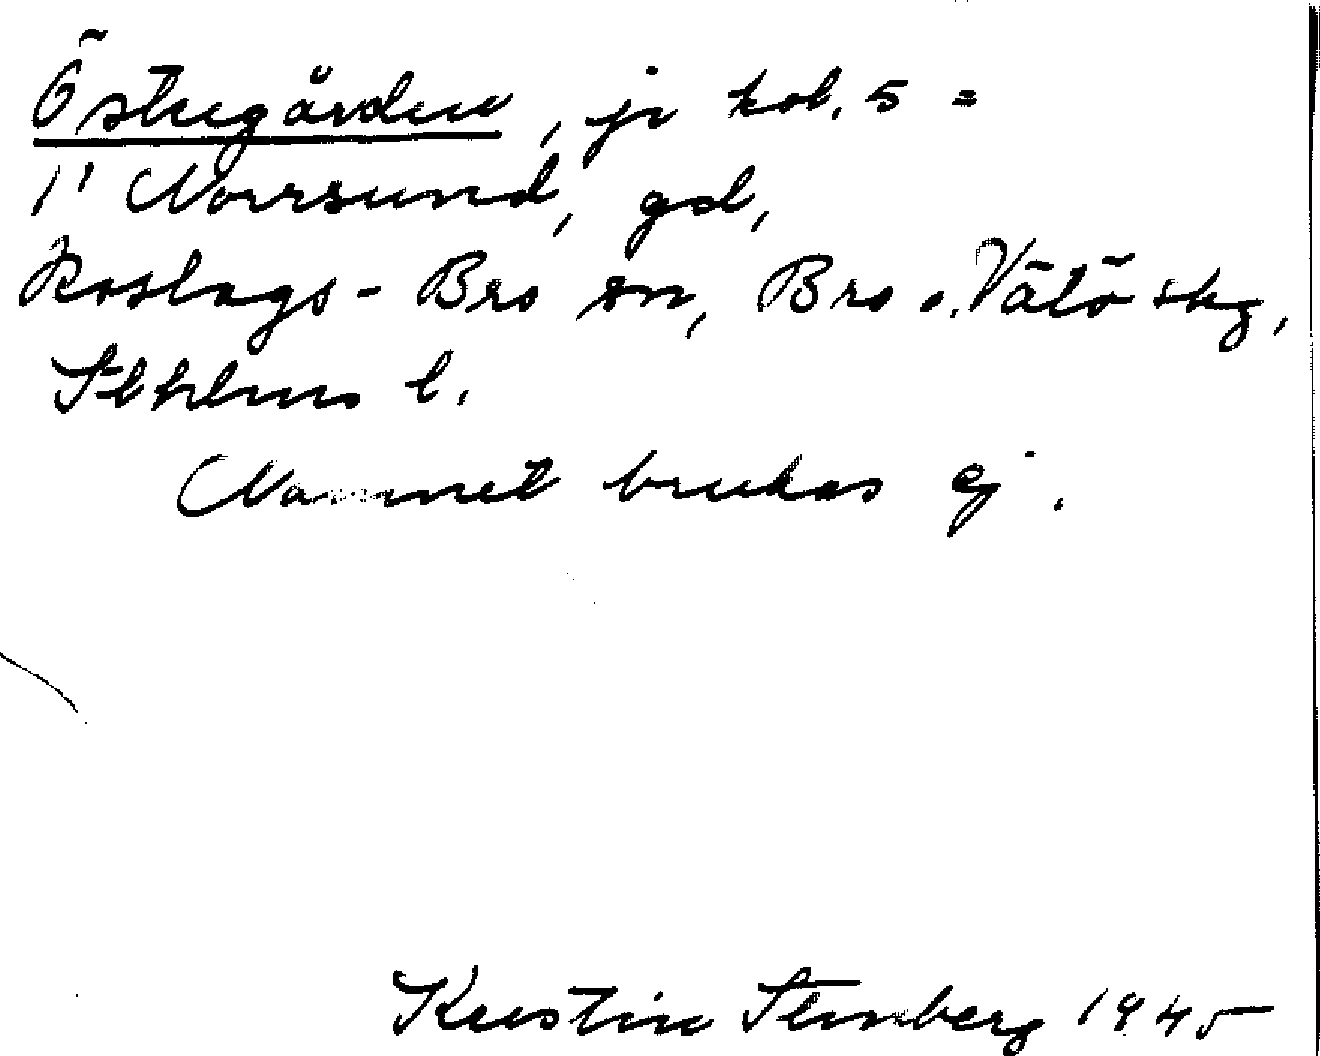 Östregården, jr kol. 5 =
1' Norrsund, gd,
Roslags-Bro sn, Bro o. Vätö skg,
Sthlms l.
Namnet brukas ej.
Kerstin Stenberg 1945